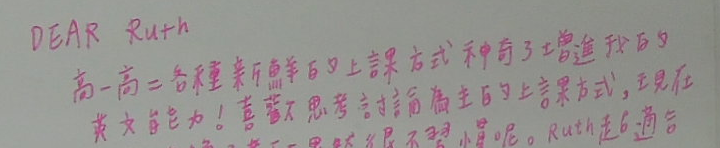 DEAR Ruth
高一高二各種新鮮的上課方式神奇了增進我的
英文能力！喜歡思考討論為主的上課方式，現在
不習慣呢。Ruth超適合